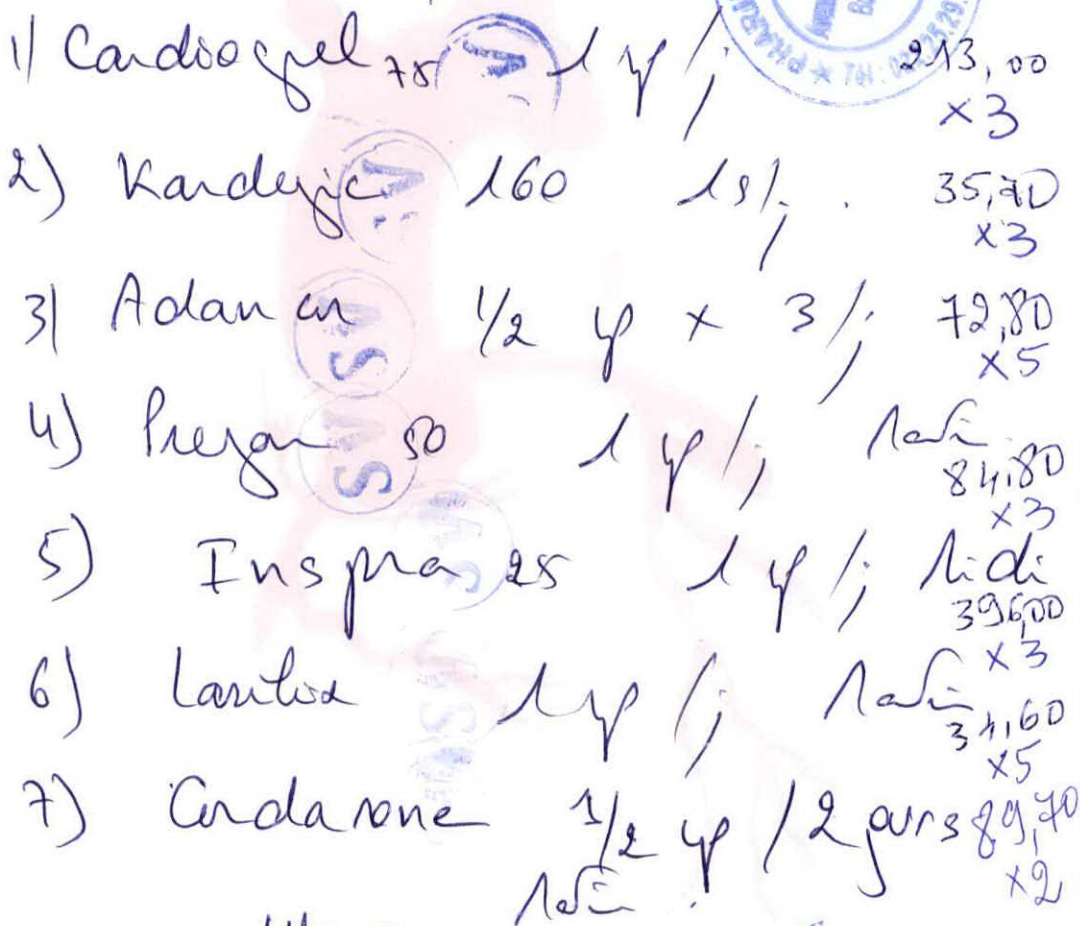 1) Cardiogrel 75 1 cp / j 213,00
x3
2) Kardegic 160 1 s / j 35,70
x3
3) Adancor 1/2 cp x 3 / j 72,80
x5
4) Prezar 50 1 cp / j Matin
84,80
x3
5) Inspra 25 1 cp / j Midi
396,00
x3
6) Lasilix 1 cp / j Matin
34,60
x5
7) Cordarone 1/2 cp / 2 jours 89,70
x2
Matin